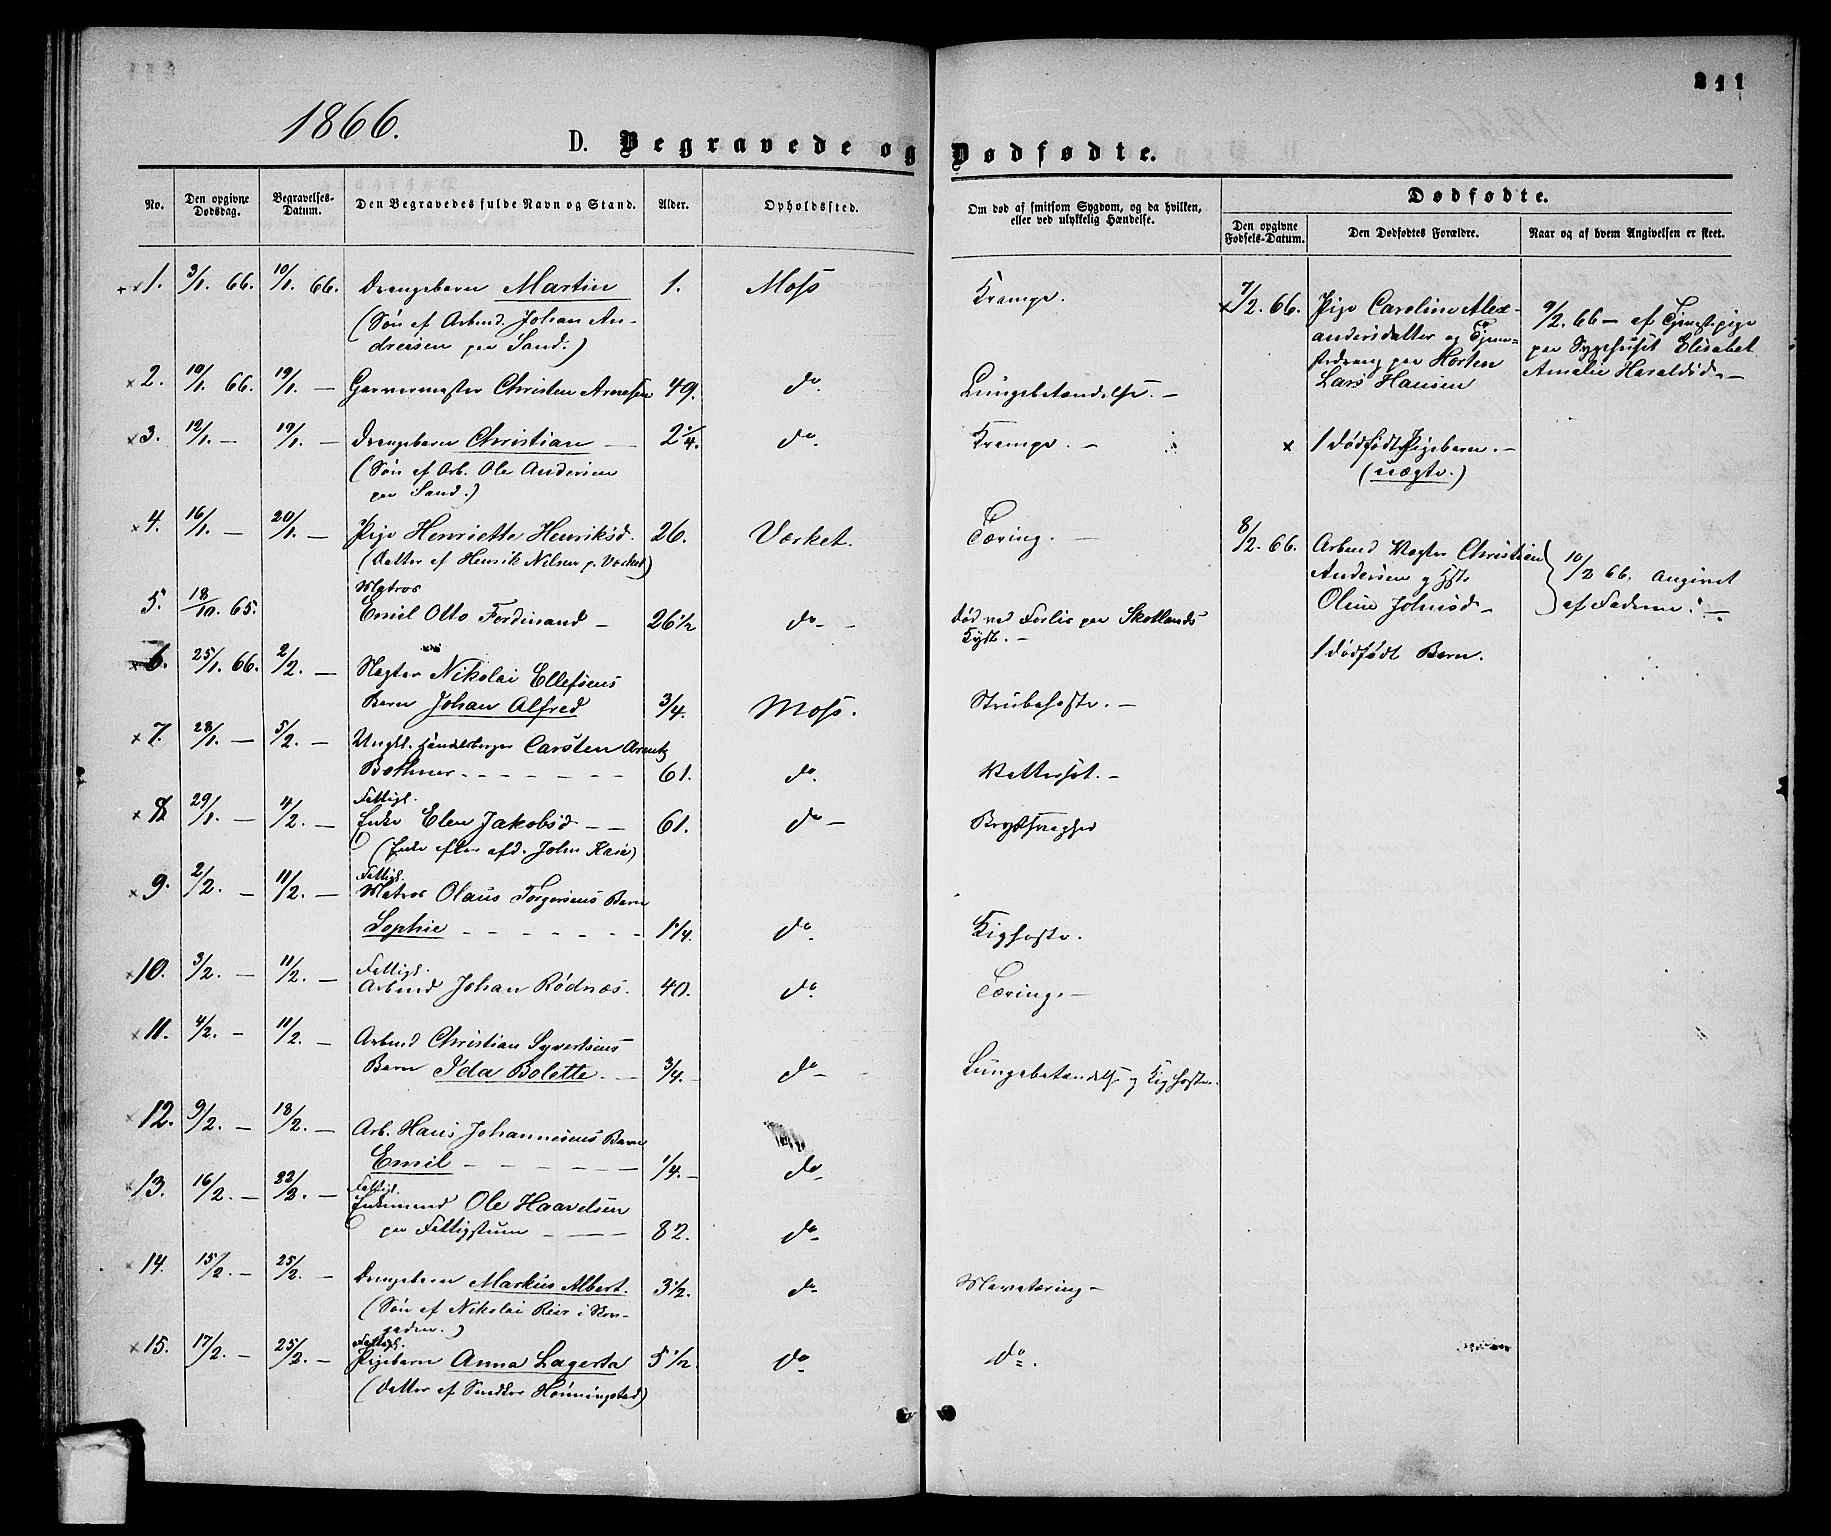 211
1866.
D. Begravede og Dødfødte.
No.
Den opgivne Dødsdag.
Begravelses-Datum.
Den Begravedes fulde Navn og Stand.
Alder.
Opholdssted.
Om død af smitsom Sygdom, og da hvilken, eller ved ulykkelig Hændelse.
Dødfødte.
Den opgivne Fødsels-Datum.
Den Dødfødtes Forældre.
Naar og af hvem Angivelsen er skeet.
1. 3/1. 66. 10/1. 66. Drengebarn Martin 1. Moss Krampe.
(Søn af Arbmd. Johan An-
dreasen paa Sand.)
2. 10/1. 66. 19/1. — Garvermester Christen Arnesen 49. do. Lungebetændelse. —
3. 12/1. — 19/1. — Drengebarn Christian — 2 1/4. do. Krampe. —
(Søn af Arb. Ole Andersen
paa Sand.)
4. 16/1. — 20/1. — Pige Henriette Henriksd. 26. Værket. Tæring. —
(Datter af Henrik Nilsen p. Værket)
5. 18/10. 65. Matros
Emil Otto Ferdinand — 26 1/2 do — død ved Forlis paa Skotlands
Kyst. —
6. 25/1. 66. 2/2. — Nikolai Ellefsens
Barn Johan Alfred 3/4. Moss. Strubehoste. —
7. 28/1. — 5/2. — Ungk. Handelsborger Carsten Arentz
Bothner — 61. do. Vattersot. —
8. 29/1. — 4/2. — Fattigl.
Enke Elen Jakobsd — 61. do — Brystsvaghed
(Enke efter afd. John Kase)
9. 2/2. — 11/2. — Fattigl.
Matros Olaus Torgersens Barn
Sophie — 1 1/4. do. Kighoste.
10. 3/2. — 11/2. — Fattigl.
Arbmd Johan Rødnæs. 40. do. Tæring. —
11. 4/2. — 11/2. — Arbmd Christian Syvertsens
Barn Ida Bolette. — 3/4. — do — Lungebetændelse og Kighoste.
12. 9/2. — 18/2. — Arb. Hans Johannesens Barn
Emil — 1/4. — do
13. 16/2. — 22/2. — Fattigl.
Enkemand Ole Haavelsen
paa Fattigstuen — 82. do
14. 15/2. — 25/2. — Drengebarn Markus Albert. 3 1/2. do Mavetæring —
(Søn af Nikolai Reier i Stor-
gaden.)
15. 17/2. — 25/2. — Fattigl.
Pigebarn Anna Lagerta 5 1/2. do do.
(Datter af Snedker Hönningstad)
7/2. 66. Pige Caroline Alex-
andersdatter og Tjene-
stedreng paa Horten
Lars Hansen
9/2. 66 — af Tjenestepige
paa Sygehuset Elisabet
Amalie Haraldsd. —
1 dødfødt Pigebarn. —
(uægte.)
8/2. 66. Arbmd Christian
Andersen og Hstr
Oline Johnsd —
10/2 66. Angivet
af Faderen. —
1 dødfødt Barn.